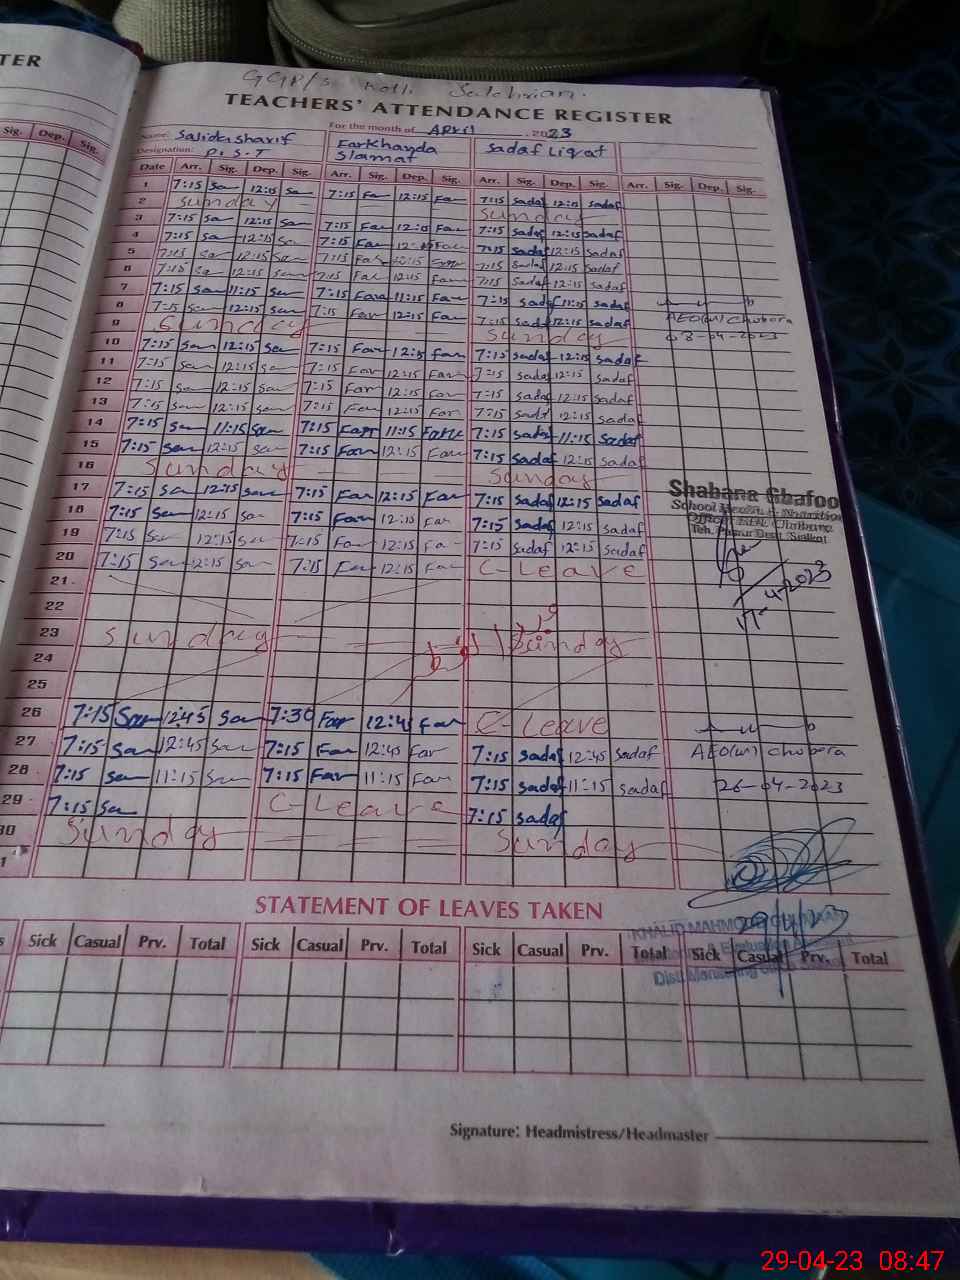 TER
Sig. Dep. Sig.
GGP/S Kotli
TEACHERS' ATTENDANCE REGISTER
For the month of APril 2023
Name: Sajida sharif Farkhanda Slamat Sadaf Liqat
Designation: P.S.T
Date Arr. Sig. Dep. Sig. Arr. Sig. Dep. Sig. Arr. Sig. Dep. Sig. Arr. Sig. Dep. Sig.
1 7:15 Sa 12:15 Sa 7:15 Far 12:15 Far 7:15 Sadaf 12:15 Sadaf
2 Sunday Sunday
3 7:15 Sa 12:15 Sa 7:15 Far 12:15 Far 7:15 Sadaf 12:15 Sadaf
4 7:15 Sa 12:15 Sa 7:15 Far 12:15 Far 7:15 Sadaf 12:15 Sadaf
5 7:15 Sa 12:15 Sa 7:15 Far 12:15 Far 7:15 Sadaf 12:15 Sadaf
6 7:15 Sa 12:15 Sa 7:15 Far 12:15 Far 7:15 Sadaf 12:15 Sadaf
7 7:15 Sa 11:15 Sa 7:15 Fara 11:15 Far 7:15 Sadaf 11:15 Sadaf
8 7:15 Sa 12:15 Sa 7:15 Far 12:15 Far 7:15 Sadaf 12:15 Sadaf AEO(w) Chobara
9 Sunday Sunday 08-04-2023
10 7:15 Sa 12:15 Sa 7:15 Far 12:15 Far 7:15 Sadaf 12:15 Sadaf
11 7:15 Sa 12:15 Sa 7:15 Far 12:15 Far 7:15 Sadaf 12:15 Sadaf
12 7:15 Sa 12:15 Sa 7:15 Far 12:15 Far 7:15 Sadaf 12:15 Sadaf
13 7:15 Sa 12:15 Sa 7:15 Far 12:15 Far 7:15 Sadaf 12:15 Sadaf
14 7:15 Sa 11:15 Sa 7:15 Far 11:15 Far 7:15 Sadaf 11:15 Sadaf
15 7:15 Sa 12:15 Sa 7:15 Far 12:15 Far 7:15 Sadaf 12:15 Sadaf
16 Sunday Sunday
17 7:15 Sa 12:15 Sa 7:15 Far 12:15 Far 7:15 Sadaf 12:15 Sadaf
18 7:15 Sa 12:15 Sa 7:15 Far 12:15 Far 7:15 Sadaf 12:15 Sadaf
19 7:15 Sa 12:15 Sa 7:15 Far 12:15 Fa 7:15 Sadaf 12:15 Sadaf
20 7:15 Sa 12:15 Sa 7:15 Far 12:15 Fa C-Leave
Shabana Ghafoo
School Health & Nutrition
Teh. Pasrur Distt. Sialkot
17-4-2023
21
22
23 Sunday Sunday
24
25
26 7:15 Sa 12:45 Sa 7:30 Far 12:45 Far C-Leave
27 7:15 Sa 12:45 Sa 7:15 Far 12:45 Far 7:15 Sadaf 12:45 Sadaf AEO(w) Chobara
28 7:15 Sa 11:15 Sa 7:15 Far 11:15 Far 7:15 Sadaf 11:15 Sadaf 26-04-2023
29 7:15 Sa C-Leave 7:15 Sadaf
30 Sunday Sunday
1
STATEMENT OF LEAVES TAKEN
KHALID MAHMOOD
s Sick Casual Prv. Total Sick Casual Prv. Total Sick Casual Prv. Total Sick Casual Prv. Total
Signature: Headmistress/Headmaster
29-04-23 08:47